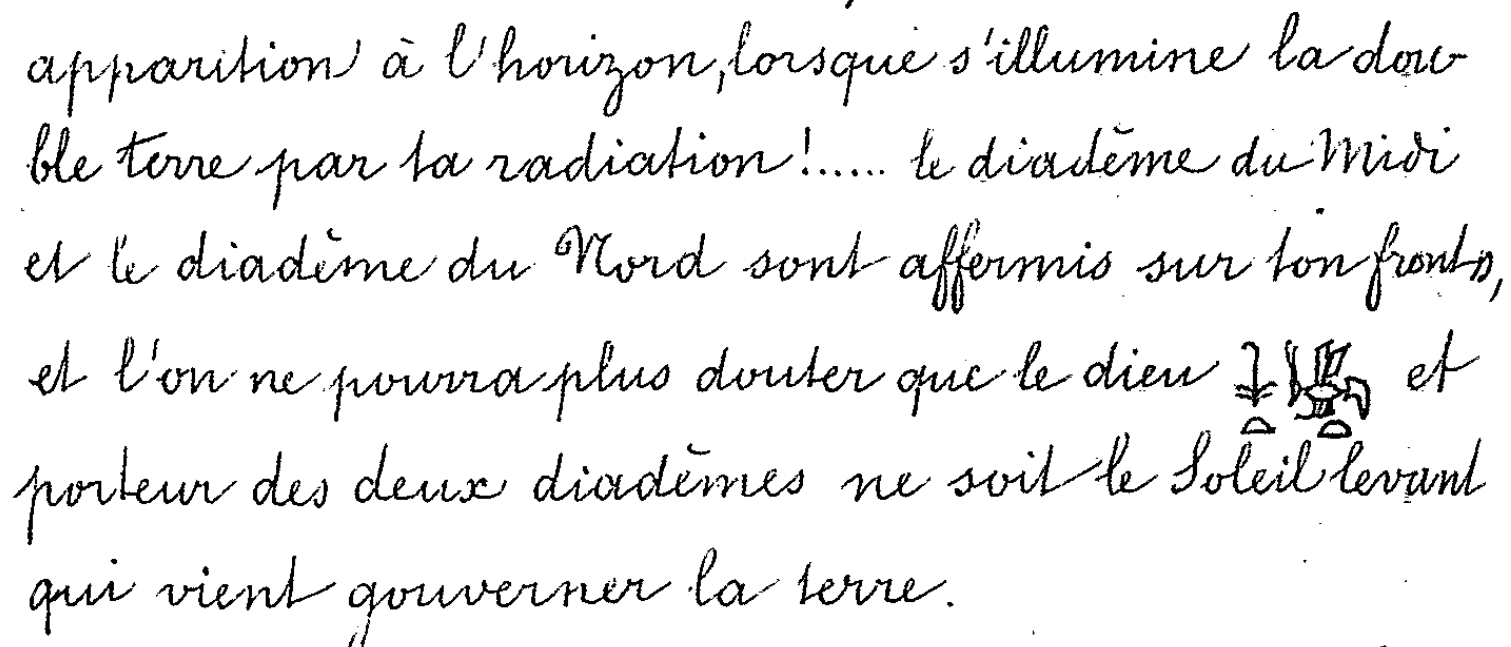 apparition à l'horizon, lorsque s'illumine la dou-
ble terre par ta radiation !...... le diadème du Midi
et le diadème du Nord sont affermis sur ton front,
et l'on ne pourra plus douter que le dieu et
porteur des deux diadèmes ne soit le Soleil levant
qui vient gouverner la terre.